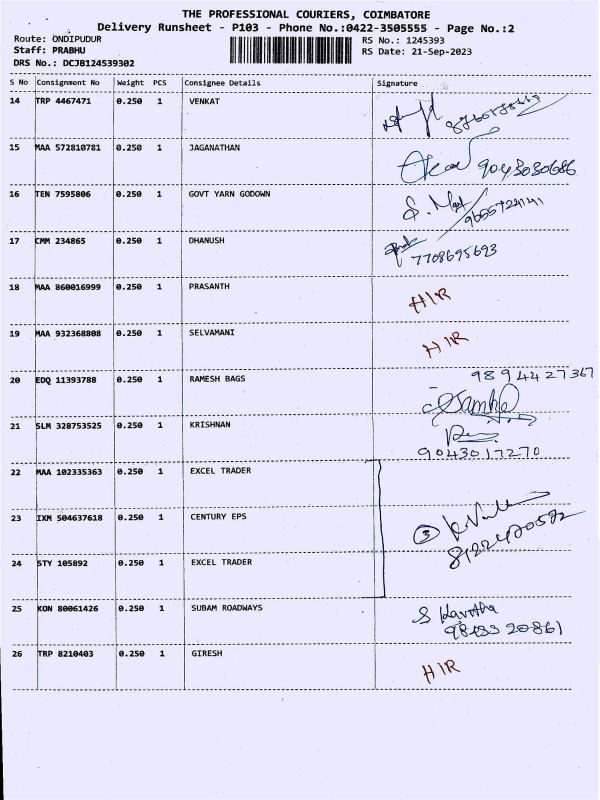 THE PROFESSIONAL COURIERS, COIMBATORE
Delivery Runsheet - P103 - Phone No.:0422-3505555 - Page No.:2
Route: ONDIPUDUR RS No.: 1245393
Staff: PRABHU RS Date: 21-Sep-2023
DRS No.: DCJB124539302
S No Consignment No Weight PCS Consignee Details Signature
14 TRP 4467471 0.250 1 VENKAT
15 MAA 572810781 0.250 1 JAGANATHAN 9043030686
16 TEN 7595806 0.250 1 GOVT YARN GODOWN
17 CMM 234865 0.250 1 DHANUSH 7708695693
18 MAA 860016999 0.250 1 PRASANTH HIR
19 MAA 932368808 0.250 1 SELVAMANI HIR
20 EDQ 11393788 0.250 1 RAMESH BAGS 9894427367
21 SLM 328753525 0.250 1 KRISHNAN 9043017270
22 MAA 102335363 0.250 1 EXCEL TRADER
23 IXM 504637618 0.250 1 CENTURY EPS 3
24 STY 105892 0.250 1 EXCEL TRADER 8122470572
25 KON 80061426 0.250 1 SUBAM ROADWAYS S Kavitha
98433 20861
26 TRP 8210403 0.250 1 GIRESH HIR